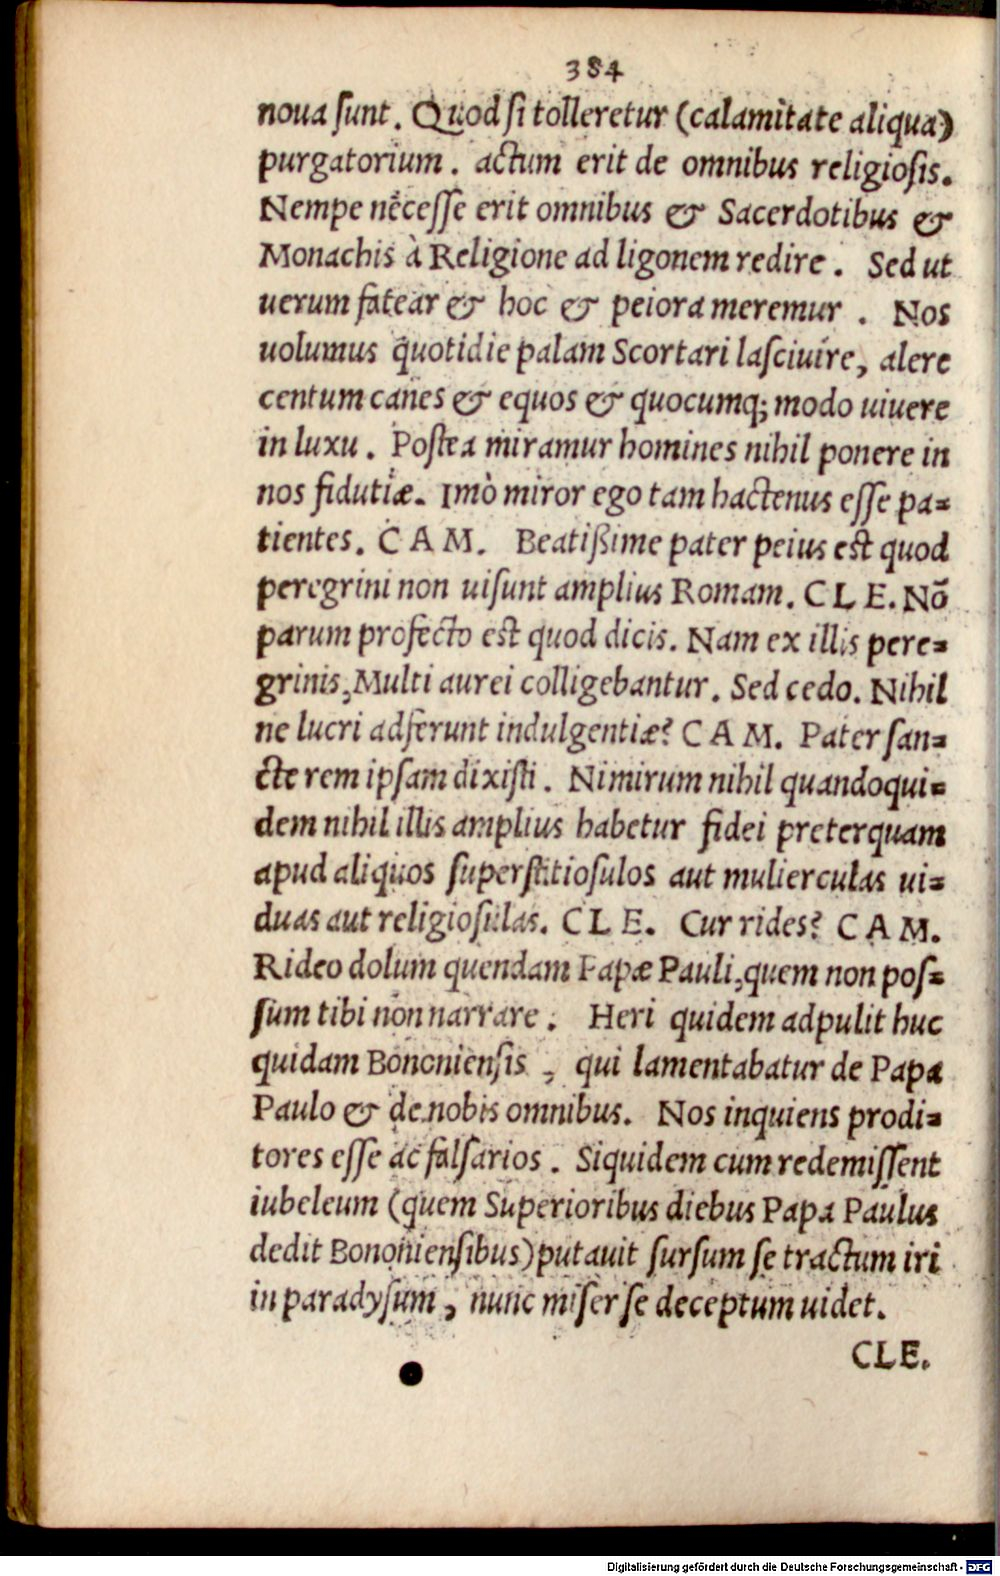 384
noua ſunt. Quod ſi tolleretur (calamitate aliqua)
purgatorium. actum erit de omnibus religioſis.
Nempe neceſſe erit omnibus & Sacerdotibus &
Monachis à Religione ad ligonem redire. Sed ut
uerum fatear & hoc & peiora meremur. Nos
uolumus quotidie palam Scortari laſciuire, alere
centum canes & equos & quocumq; modo uiuere
in luxu. Poſtea miramur homines nihil ponere in
nos fidutiæ. Imò miror ego tam hactenus eſſe pa-
tientes. C A M. Beatißime pater peius eſt quod
peregrini non uiſunt amplius Romam. C L E. Nõ
parum profecto eſt quod dicis. Nam ex illis pere-
grinis, Multi aurei colligebantur. Sed cedo. Nihil
ne lucri adferunt indulgentiæ? C A M. Pater ſan-
cte rem ipſam dixiſti. Nimirum nihil quandoqui-
dem nihil illis amplius habetur fidei preterquam
apud aliquos ſuperſtitioſulos aut mulierculas ui-
duas aut religioſulas. C L E. Cur rides? C A M.
Rideo dolum quendam Papæ Pauli, quem non poſ-
ſum tibi non narrare. Heri quidem adpulit huc
quidam Bononienſis, qui lamentabatur de Papa
Paulo & de nobis omnibus. Nos inquiens prodi-
tores eſſe ac falſarios. Siquidem cum redemiſſent
iubeleum (quem Superioribus diebus Papa Paulus
dedit Bononienſibus) putauit ſurſum ſe tractum iri
in paradyſum, nunc miſer ſe deceptum uidet.
CLE.
Digitalisierung gefördert durch die Deutsche Forschungsgemeinschaft - DFG